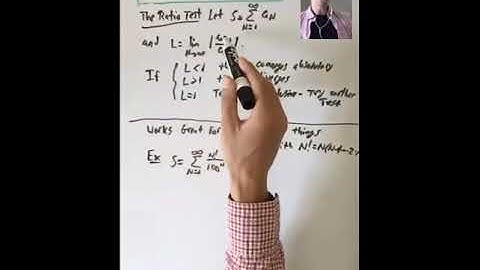 The Ratio Test Let S = ∞ Σ N=1 aN
and L = lim N→∞ | aN+1 / aN |
If { L<1 th converges absolutely
L>1 th verges
L=1 Te - Try another
Test
Works Great For things
with N! = N(N-1)(N-2)
Ex S = ∞ Σ N=1 N! / 100^N